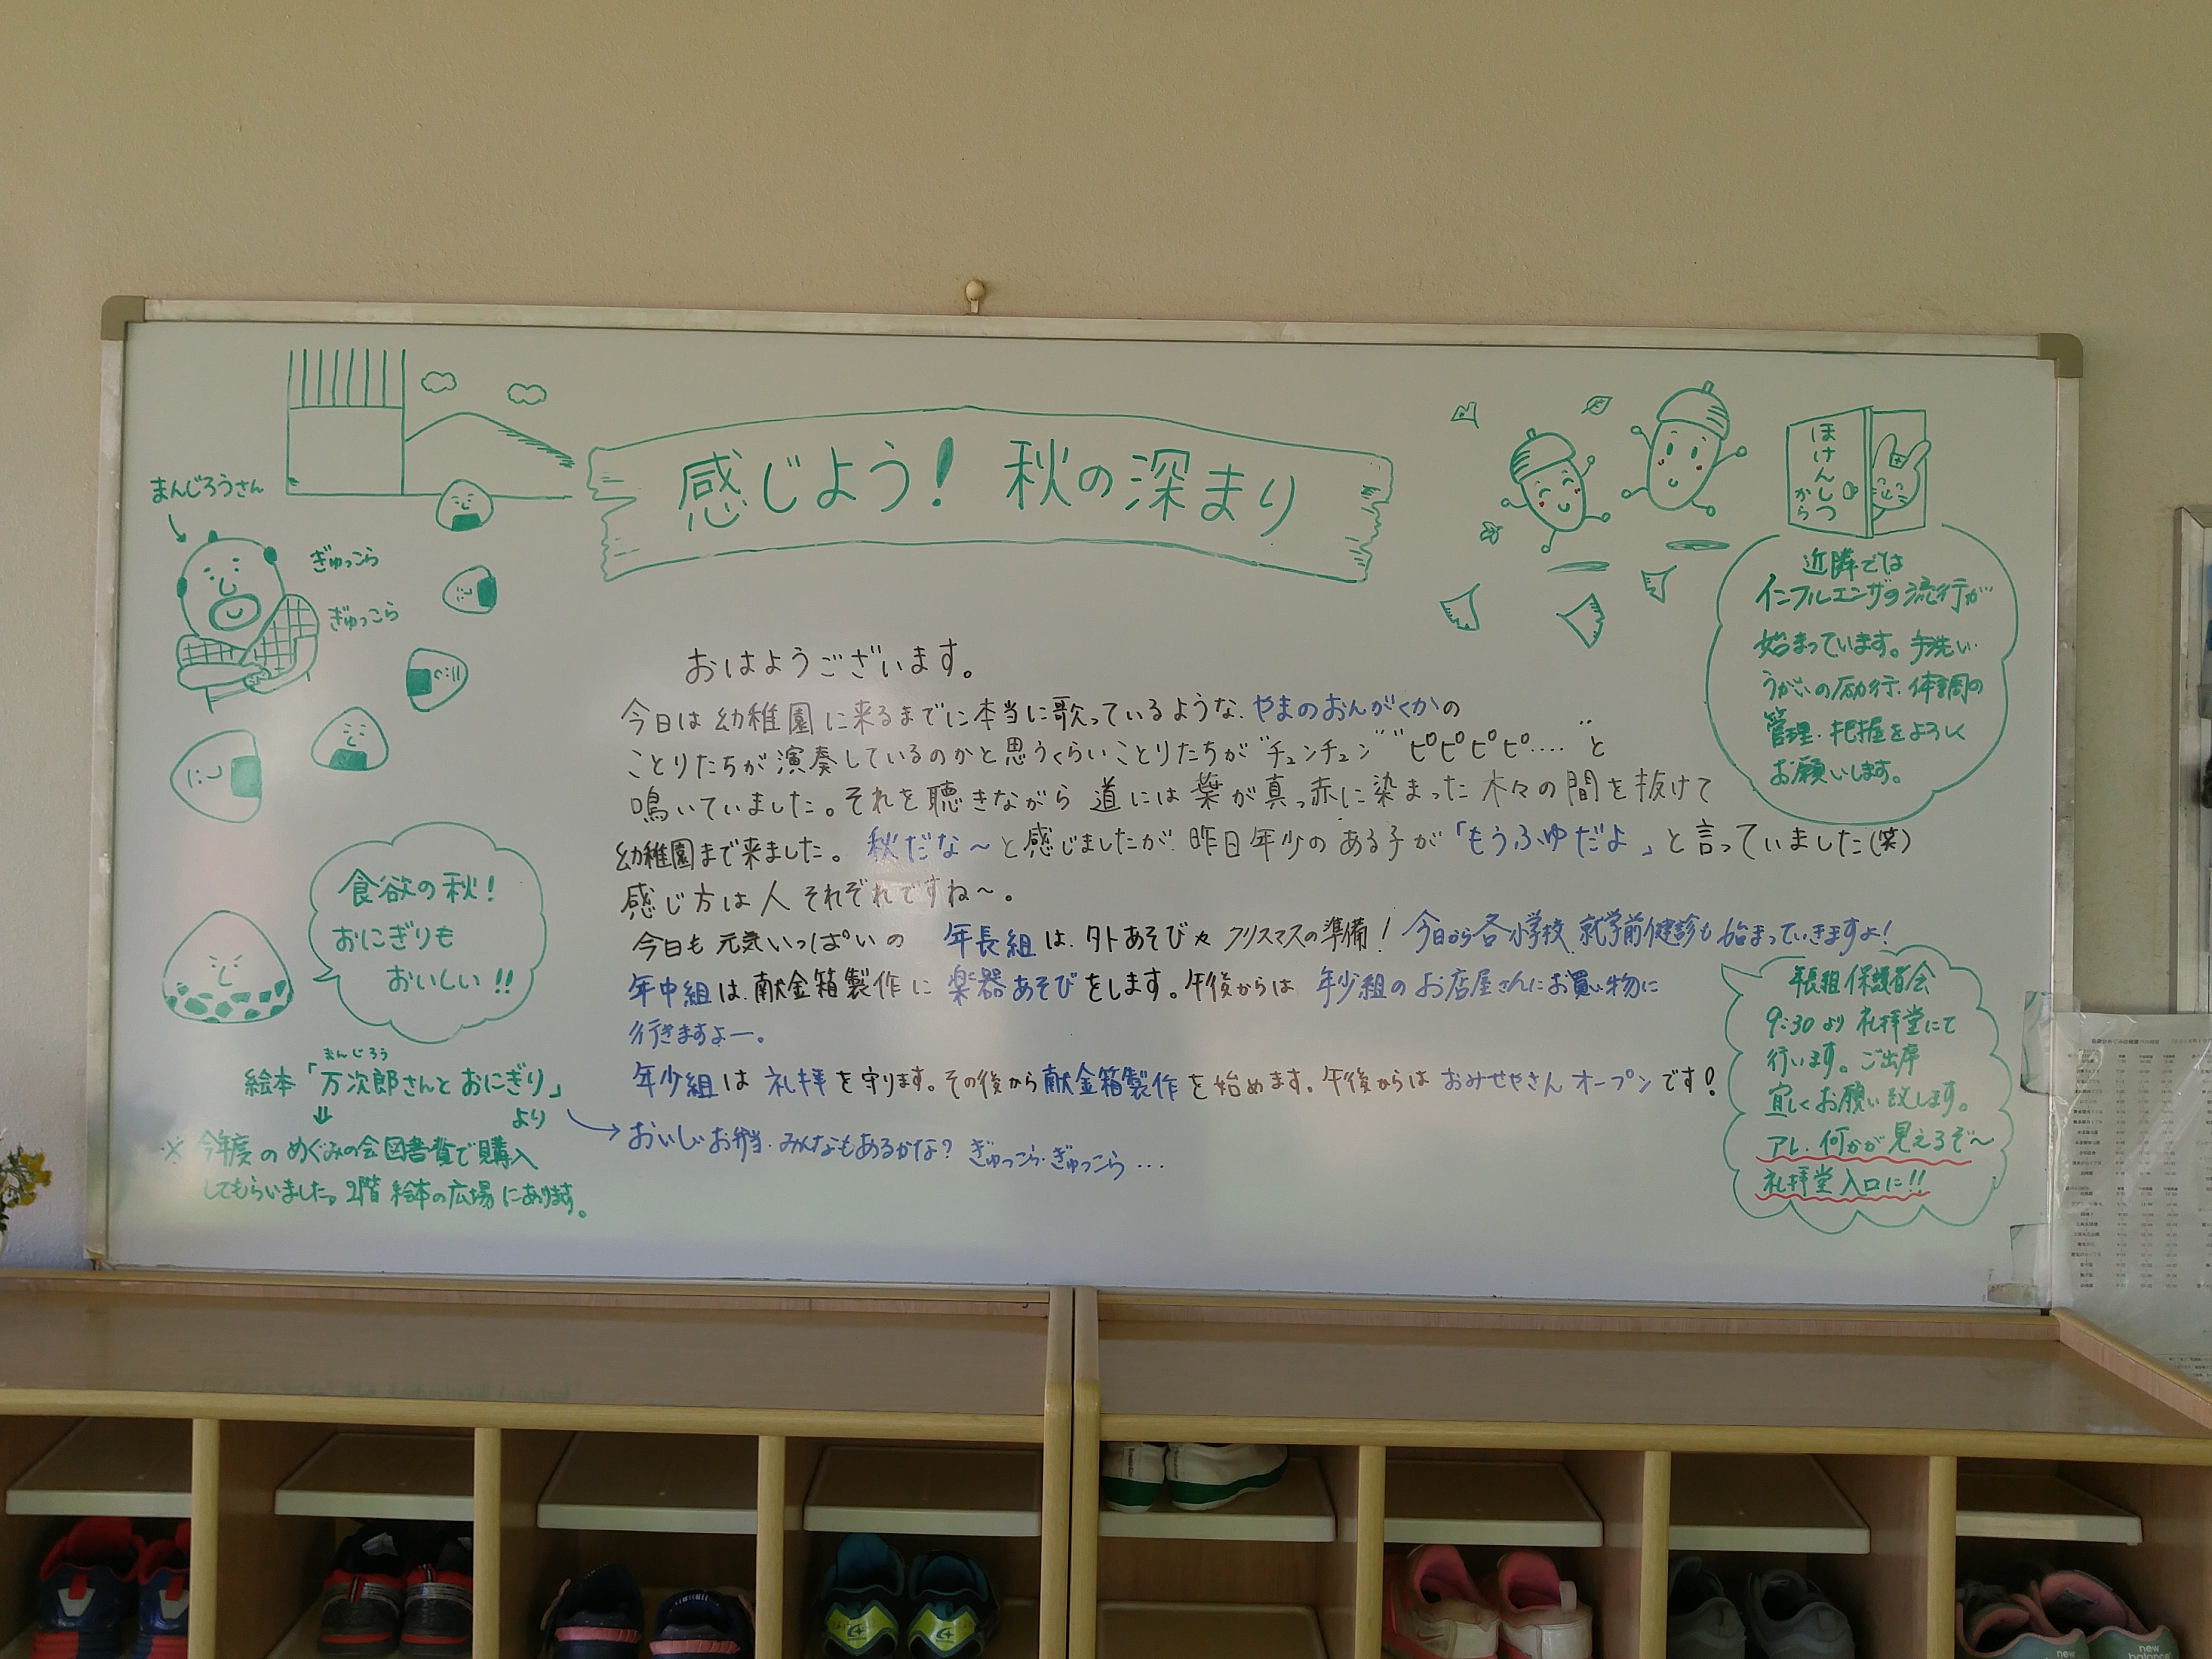 感じよう! 秋の深まり
まんじろうさん
ぎゅっこら
ぎゅっこら
ほけんしつ
から
近隣では
インフルエンザの流行が
始まっています。手洗い・
うがいの励行、体調の
管理・把握をよろしく
お願いします。
おはようございます。
今日は幼稚園に来るまでに本当に歌っているような、やまのおんがくかの
ことりたちが演奏しているのかと思うくらいことりたちが"チュンチュン""ピピピピ‥‥"と
鳴いていました。それを聴きながら道には葉が真っ赤に染まった木々の間を抜けて
幼稚園まで来ました。秋だな～と感じましたが、昨日年少のある子が「もうふゆだよ」と言っていました(笑)
感じ方は人それぞれですね～。
今日も元気いっぱいの 年長組は、外あそびやクリスマスの準備! 今日から各小学校、就学前健診も始まっていきますよ!
年中組は、献金箱製作に楽器あそびをします。午後からは 年少組のお店屋さんにお買い物に
行きますよー。
年少組は 礼拝を守ります。その後から献金箱製作を始めます。午後からは おみせやさん オープンです!
おいしいお弁当、みんなもあるかな? ぎゅっこら・ぎゅっこら…
食欲の秋!
おにぎりも
おいしい!!
まんじろう
絵本「万次郎さんとおにぎり」
より
※今年度のめぐみの会図書費で購入
してもらいました。2階 絵本の広場にあります。
年長組保護者会
9:30より 礼拝堂にて
行います。ご出席
宜しくお願い致します。
アレ、何かが見えるぞ～
礼拝堂入口に!!
new balance